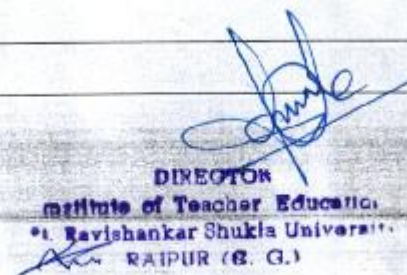 DIRECTOR
nstitute of Teacher Education
Pt. Ravishankar Shukla University
RAIPUR (C. G.)